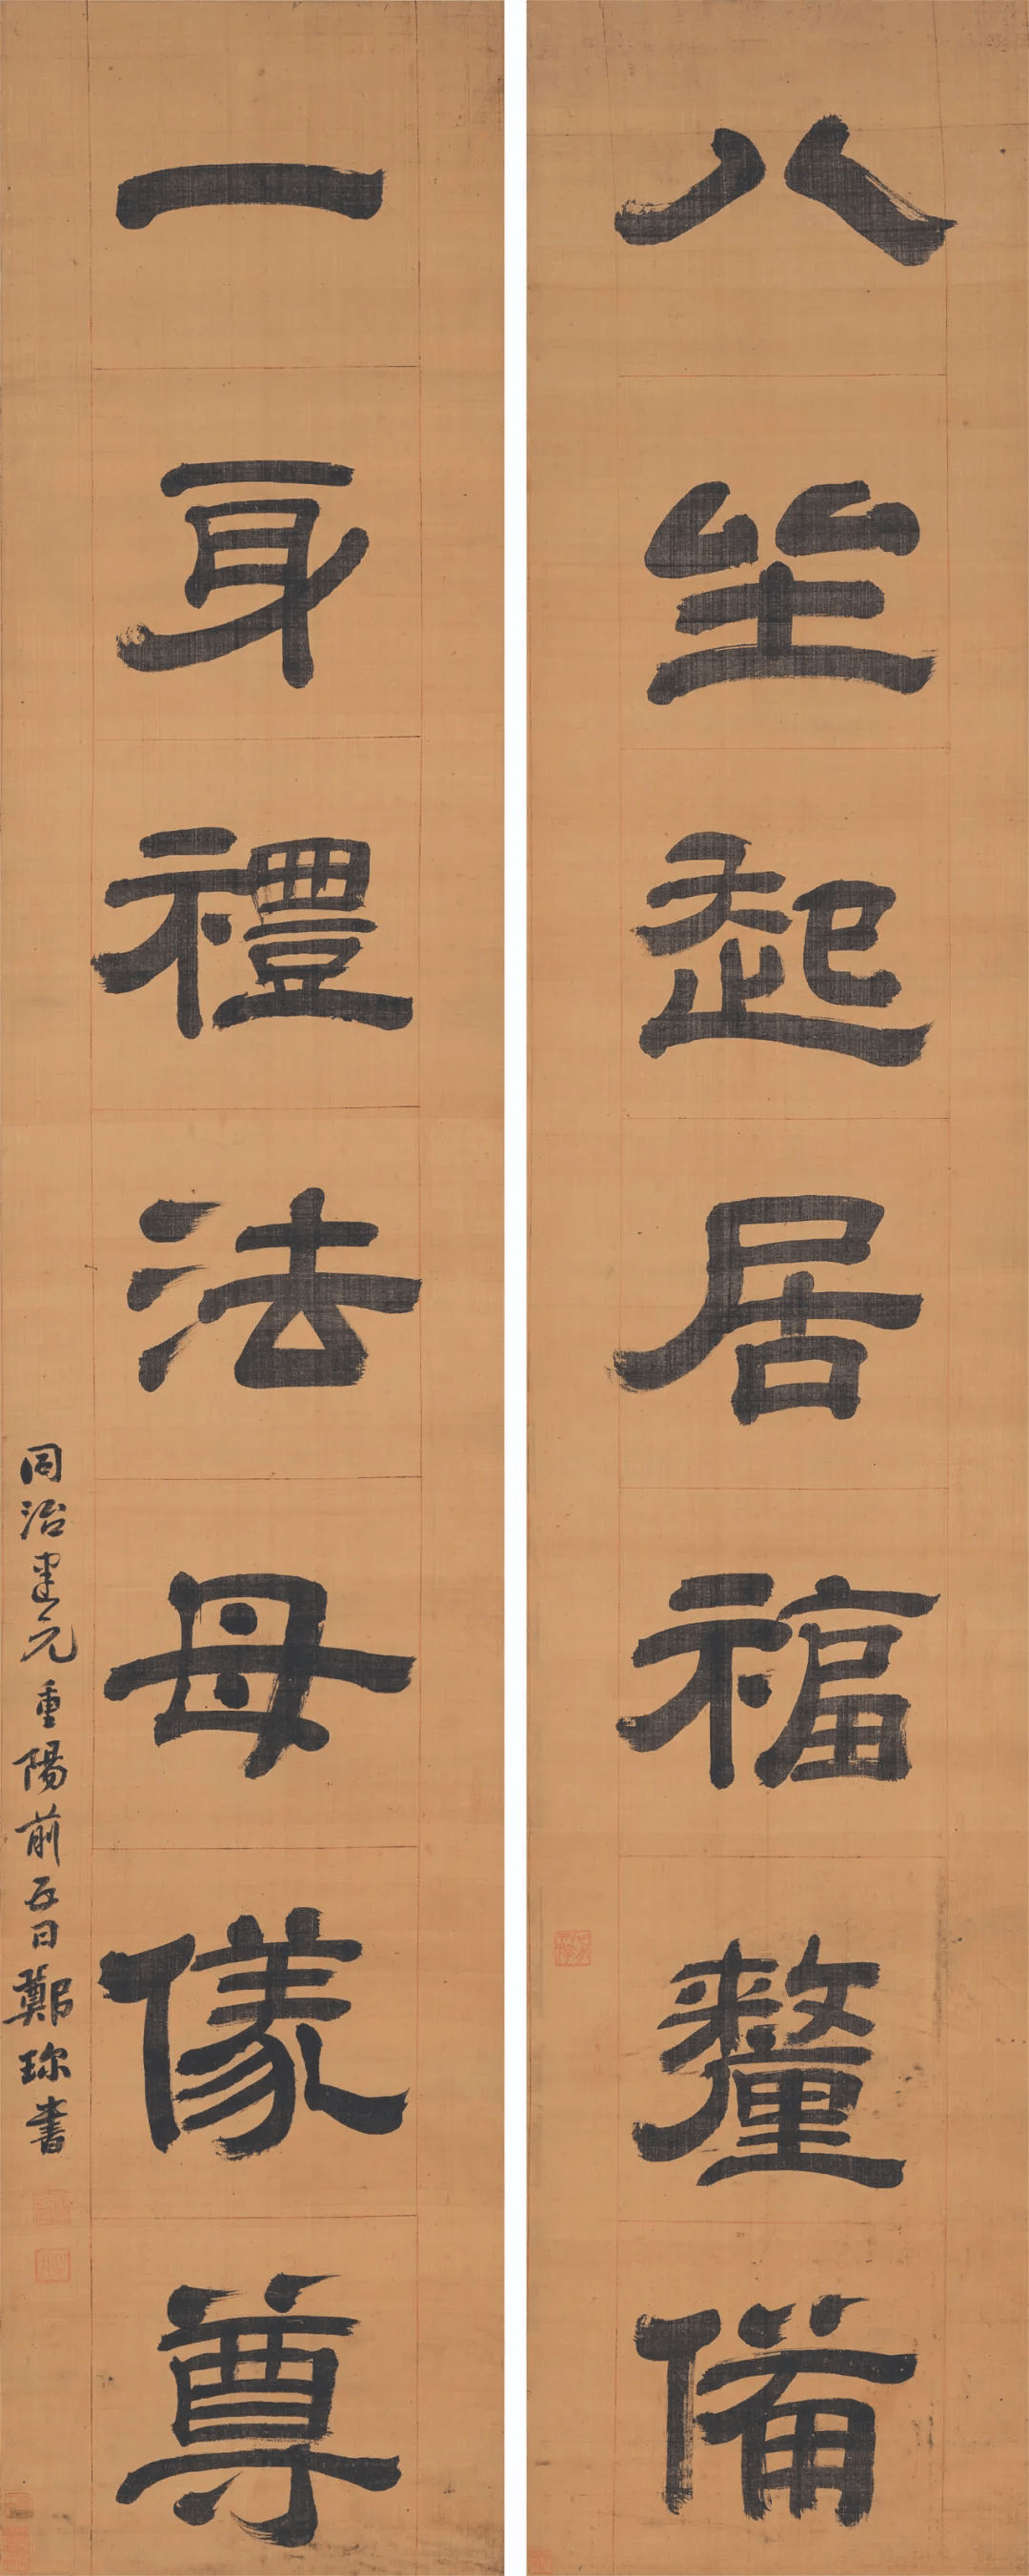 八坐起居福釐備
一身禮法母儀尊
同治建元重陽前五日鄭珍書